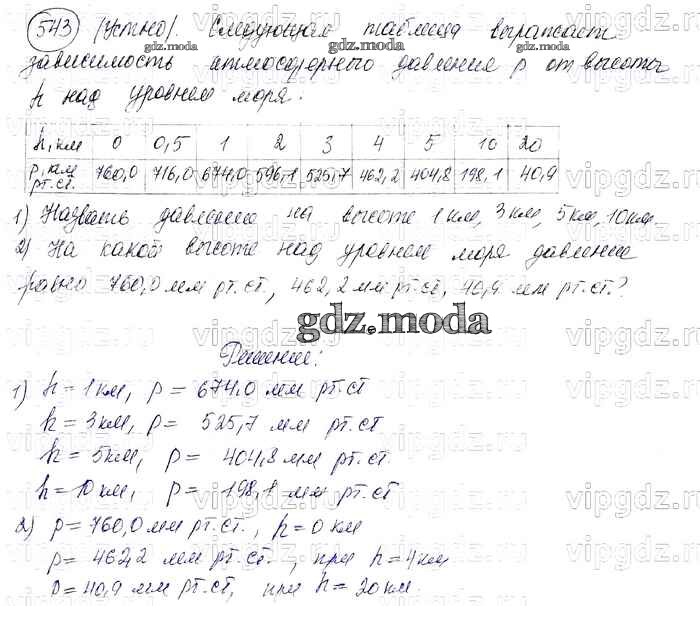 543 (Устно). Следующая таблица выражает
зависимость атмосферного давления p от высоты
h над уровнем моря.
h, км 0 0,5 1 2 3 4 5 10 20
p, км рт.ст. 760,0 716,0 674,0 596,1 525,7 462,2 404,8 198,1 40,9
1) Назвать давление на высоте 1 км, 3 км, 5 км, 10 км.
2) На какой высоте над уровнем моря давление
равно 760,0 мм рт.ст., 462,2 мм рт.ст., 40,9 мм рт.ст.?
gdz.moda
Решение:
1) h = 1 км, p = 674,0 мм рт.ст
h = 3 км, p = 525,7 мм рт.ст
h = 5 км, p = 404,8 мм рт.ст.
h = 10 км, p = 198,1 мм рт.ст.
2) p = 760,0 мм рт.ст., h = 0 км
p = 462,2 мм рт.ст., при h = 4 км
p = 40,9 мм рт.ст, при h = 20 км.